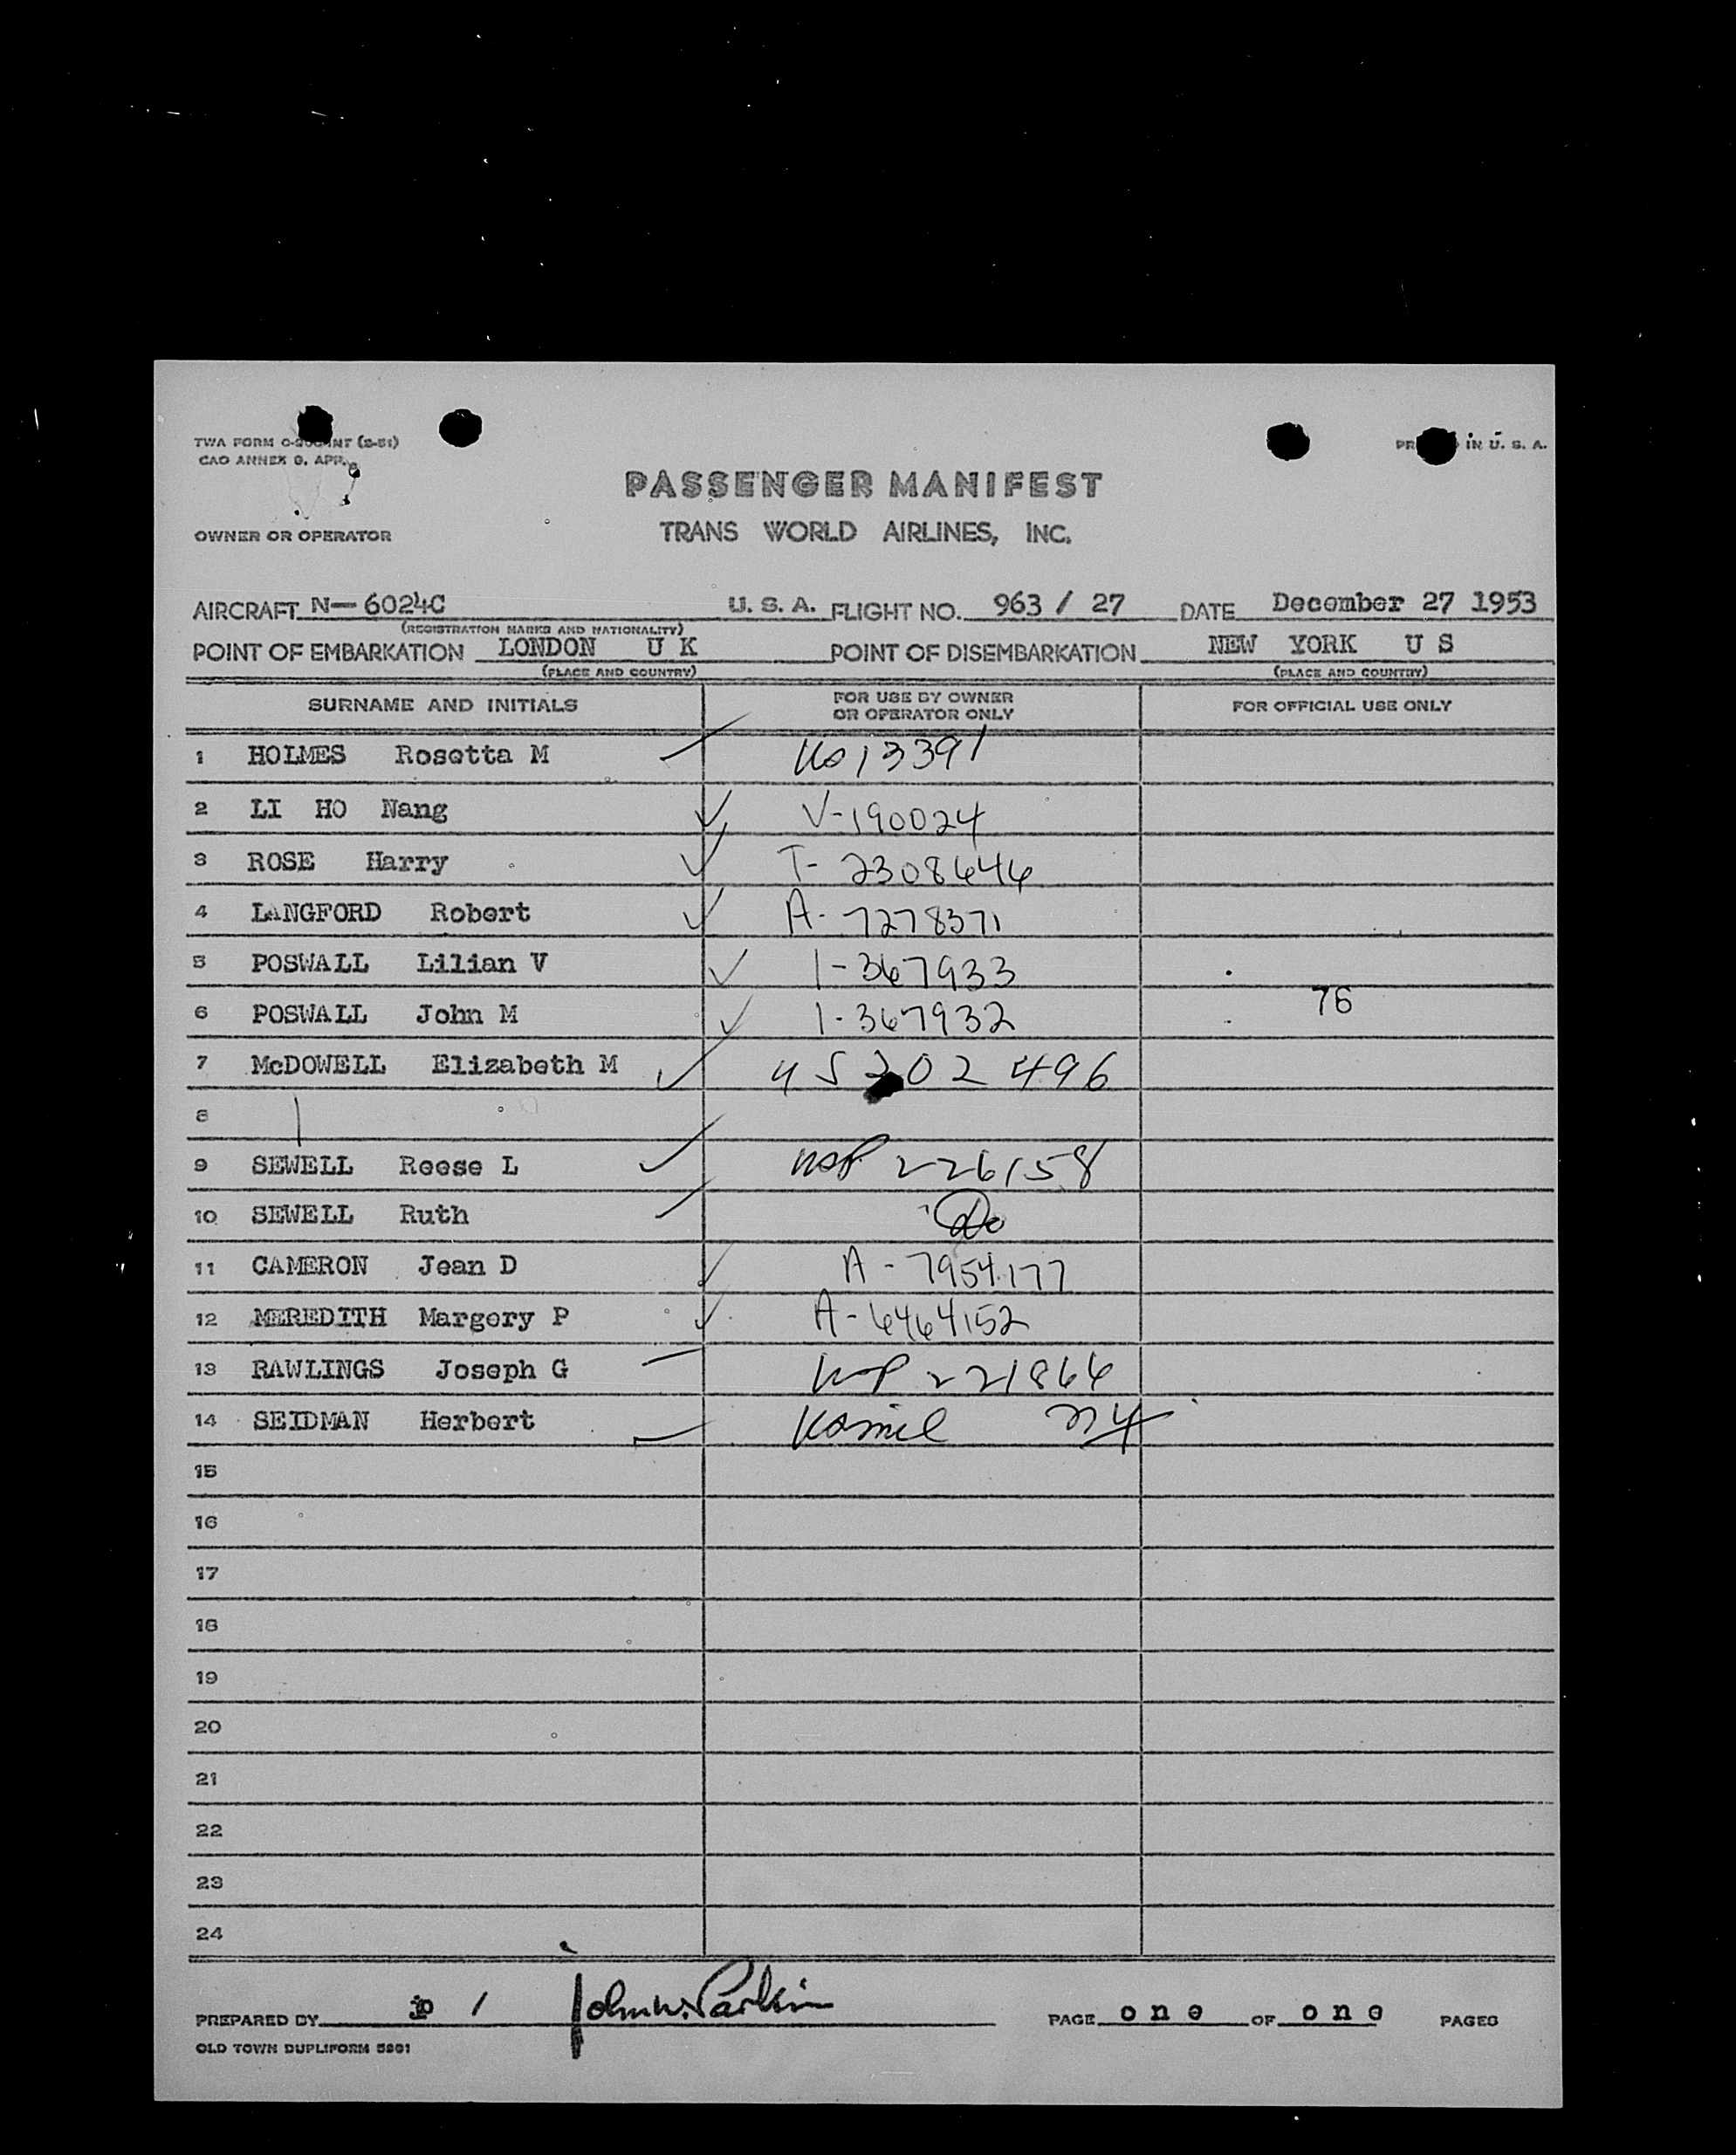 TWA FORM
PRINTED IN U. S. A.
PASSENGER MANIFEST
OWNER OR OPERATOR TRANS WORLD AIRLINES, INC.
AIRCRAFT N— 6024C U. S. A. FLIGHT NO. 963 / 27 DATE December 27 1953
(REGISTRATION MARKS AND NATIONALITY)
POINT OF EMBARKATION LONDON U K POINT OF DISEMBARKATION NEW YORK U S
(PLACE AND COUNTRY) (PLACE AND COUNTRY)
SURNAME AND INITIALS FOR USE BY OWNER OR OPERATOR ONLY FOR OFFICIAL USE ONLY
1 HOLMES Rosetta M ✓ 13391
2 LI HO Nang ✓ V-190024
3 ROSE Harry ✓ T- 2308646
4 LANGFORD Robert ✓ A- 7278371
5 POSWALL Lilian V ✓ 1-367933
6 POSWALL John M ✓ 1-367932 76
7 McDOWELL Elizabeth M ✓ 496
8
9 SEWELL Reese L ✓ 226158
10 SEWELL Ruth ✓ Do
11 CAMERON Jean D ✓ A - 7954177
12 MEREDITH Margery P ✓ A-6464152
13 RAWLINGS Joseph G 221866
14 SEIDMAN Herbert ✓ NY
15
16
17
18
19
20
21
22
23
24
PREPARED BY PAGE one OF one PAGES
OLD TOWN DUPLIFORM